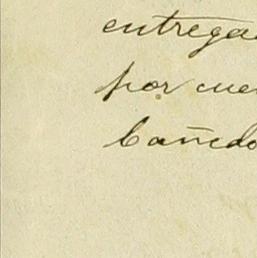 entrega
por cue
Cañedo